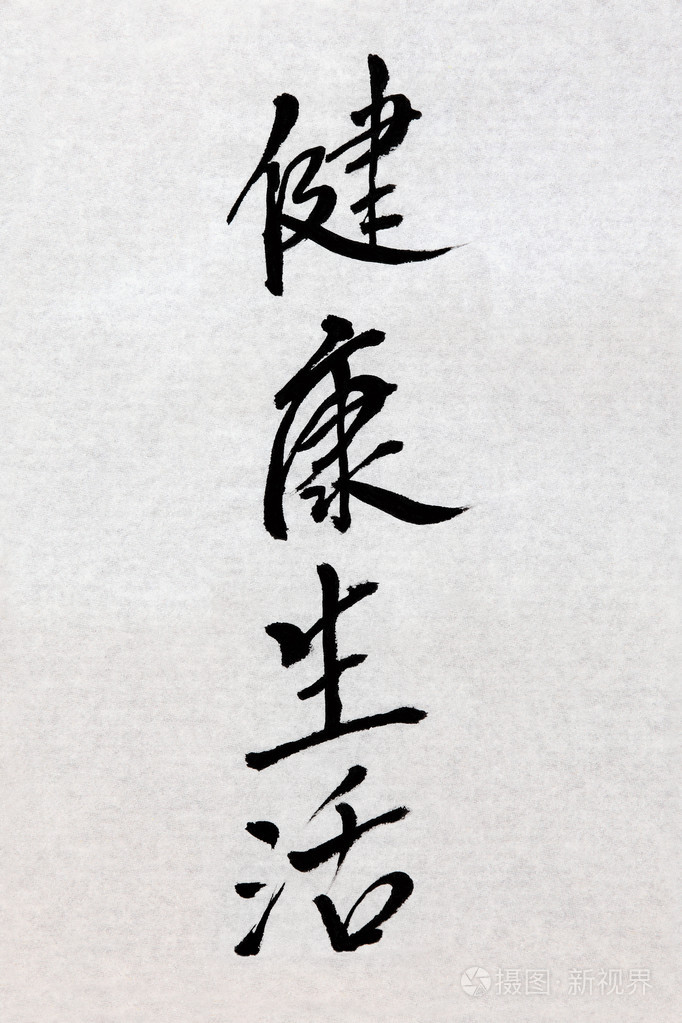 健康生活
摄图·新视界